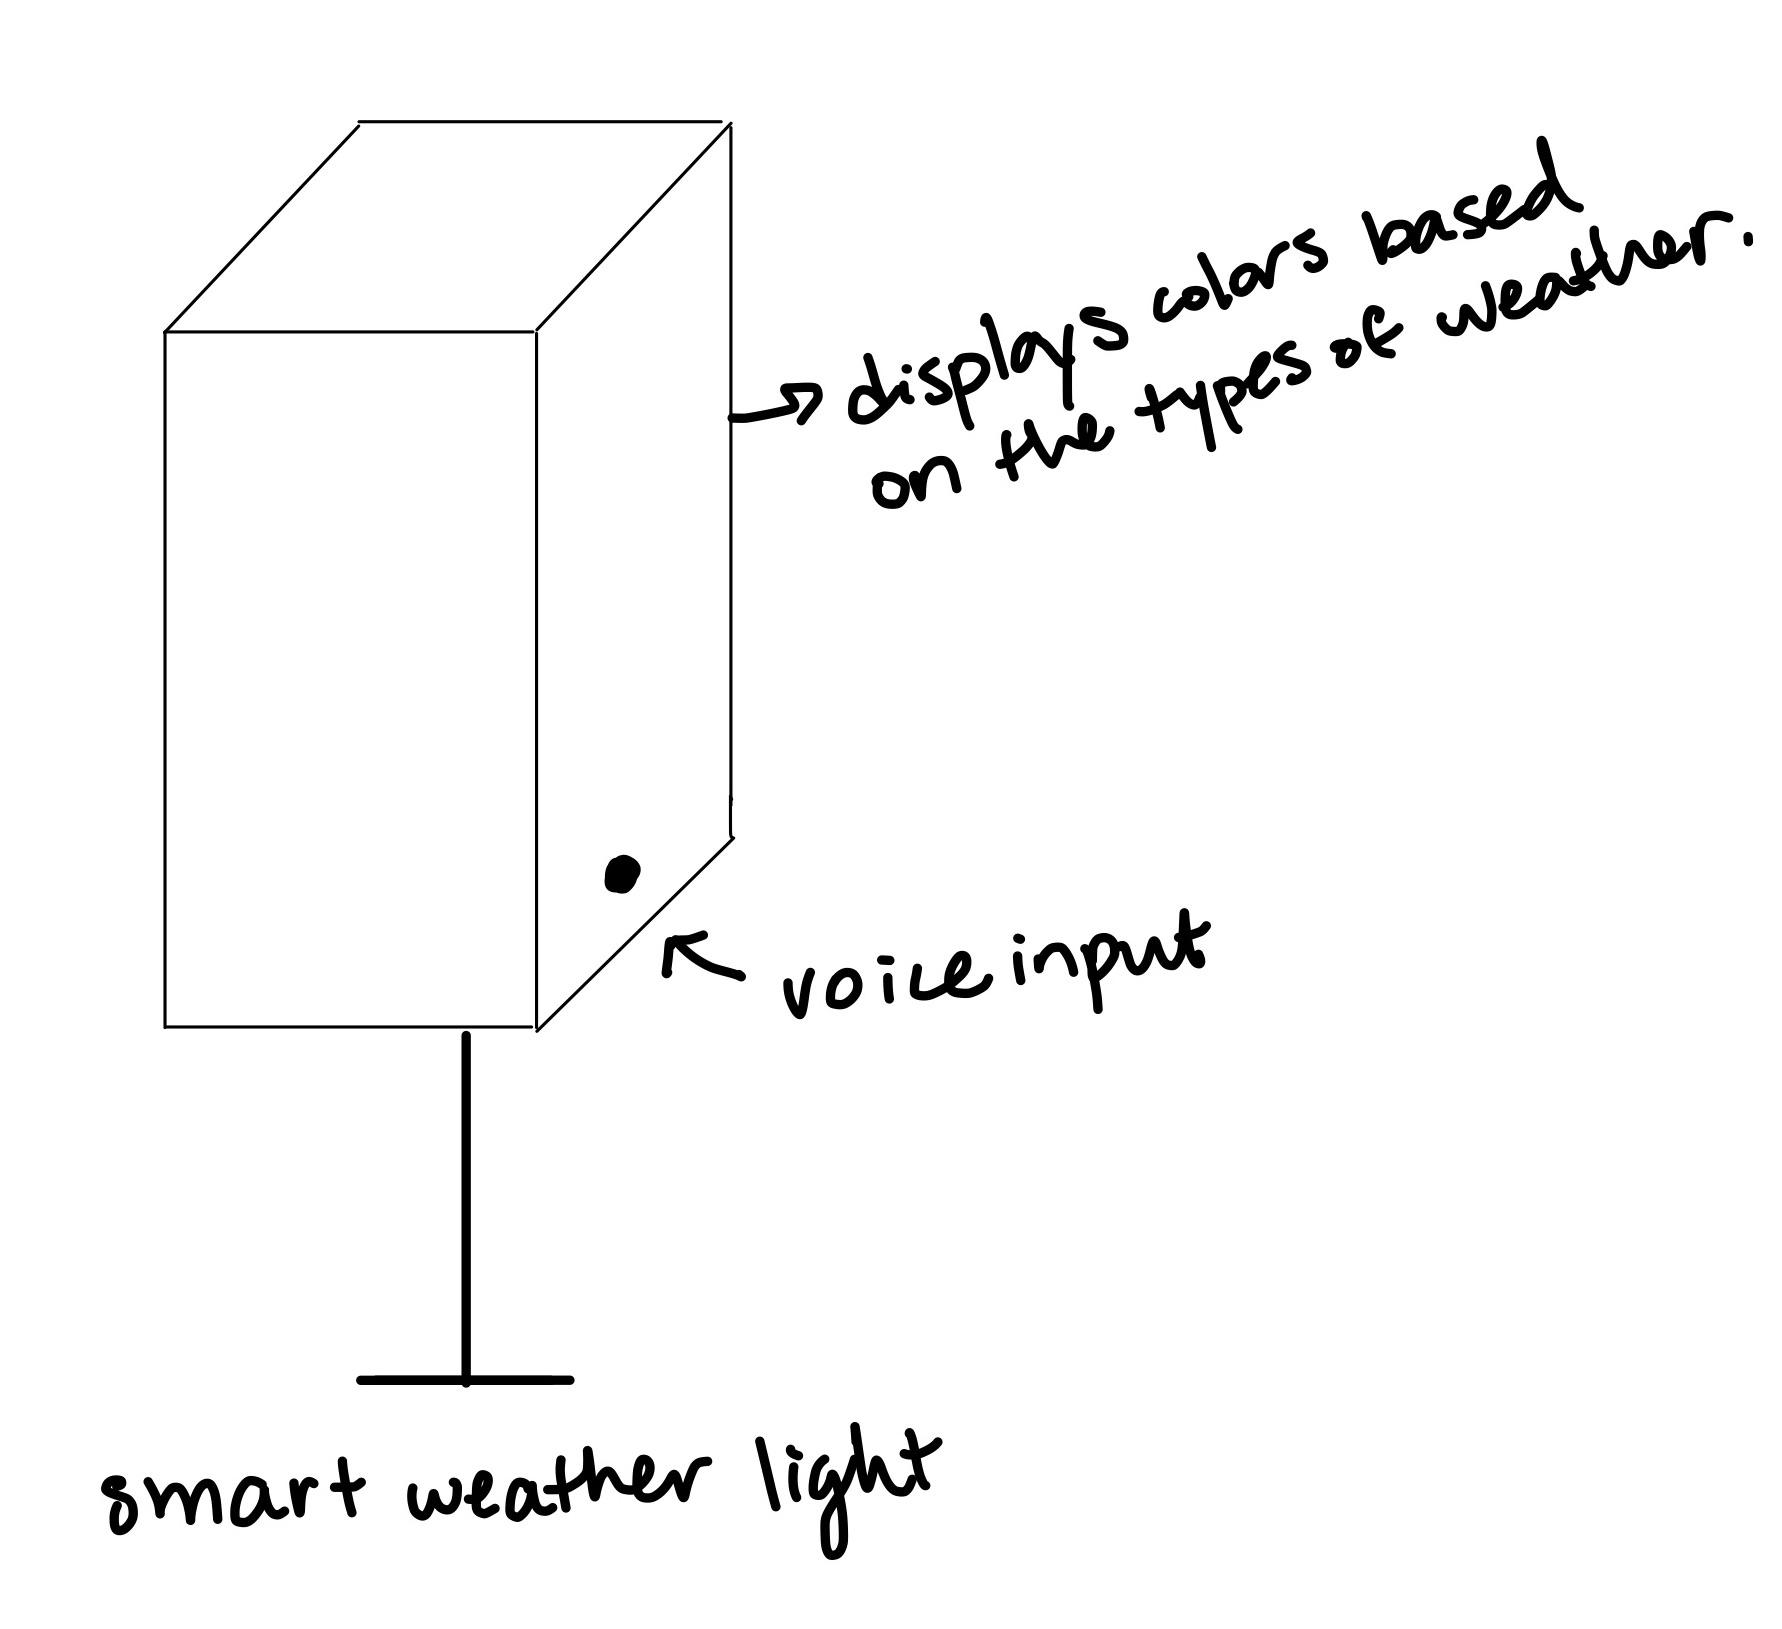 displays colors based
on the types of weather.
voice input
smart weather light